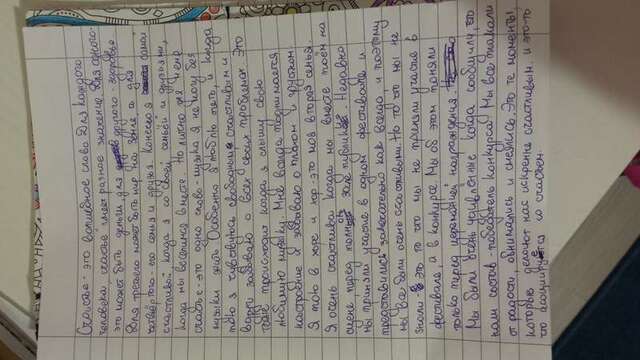 Счастье - это волшебное слово. Для каждого
человека счастье имеет разное значение. Для одного-
это может быть деньги, для другого - здоровье
Для третьего может быть мир на земле, а для
четвёртого - его семья и друзья. Конечно я самая
счастливой, когда я со своей семьёй и друзьями,
когда мы веселимся вместе. Но лично для меня
счастье - это одно слово - музыка Я не могу без
музыки жить Особенно я люблю петь, и когда
пою я чувствуюсь свободным счастливым и
вдруг забываю о всех своих проблемах. Это
тоже происходит когда я слышу свою
любимую музыку. Мне всегда поднимается
настроение и забываю о плохом и грустном.
Я пою в хоре и хор - это моя вторая семья.
Я очень счастлива когда мы вместе поём на
сцене, перед полным зале публики. Недавно
мы приняли участие в одном фестивале и
представились замечательно как всегда и поэтому
мы все были очень счастливыми. Но то что мы не
знали - это то что мы не приняли участие в
фестивале, а в конкурсе. Мы об этом поняли
только перед церемонией награждения.
Мы были очень удивлённые когда сообщили, что
наш состав - победитель конкурса! Мы все плакали
от радости, обнимались и смеялись. Это те моменты,
которые делают нас искренне счастливыми. и это - то
что ассоциируется со счастьем.